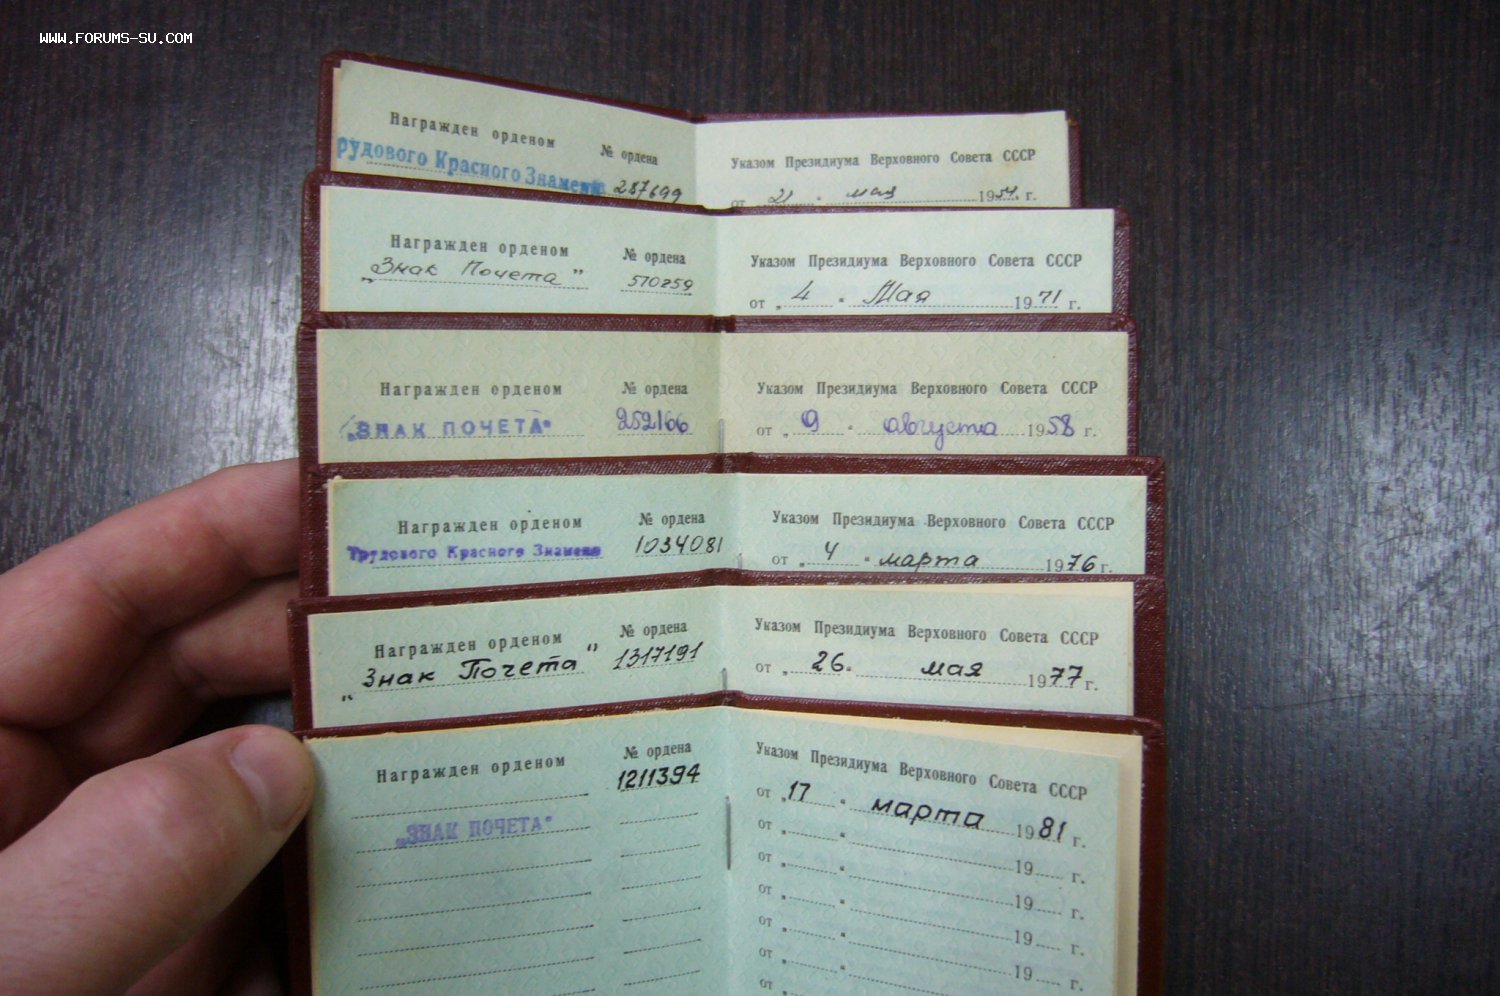 WWW.FORUMS-SU.COM
Награжден орденом № ордена Указом Президиума Верховного Совета СССР
рудового Красного Знамени 287699 от 21 " мая 1954 г.
Награжден орденом № ордена Указом Президиума Верховного Совета СССР
„Знак Почета" 570259 от „ 4 " Мая 1971 г.
Награжден орденом № ордена Указом Президиума Верховного Совета СССР
„ЗНАК ПОЧЕТА" 252166 от „ 9 " августа 1958 г.
Награжден орденом № ордена Указом Президиума Верховного Совета СССР
Трудового Красного Знамени 1034081 от „ 4 " марта 1976 г.
Награжден орденом № ордена Указом Президиума Верховного Совета СССР
„Знак Почета" 1317191 от „ 26 " мая 1977 г.
Награжден орденом № ордена Указом Президиума Верховного Совета СССР
1211394 от „ 17 " марта 1981 г.
„ЗНАК ПОЧЕТА" от „ " 19 г.
от „ " 19 г.
от „ " 19 г.
от „ " 19 г.
от „ " 19 г.
от „